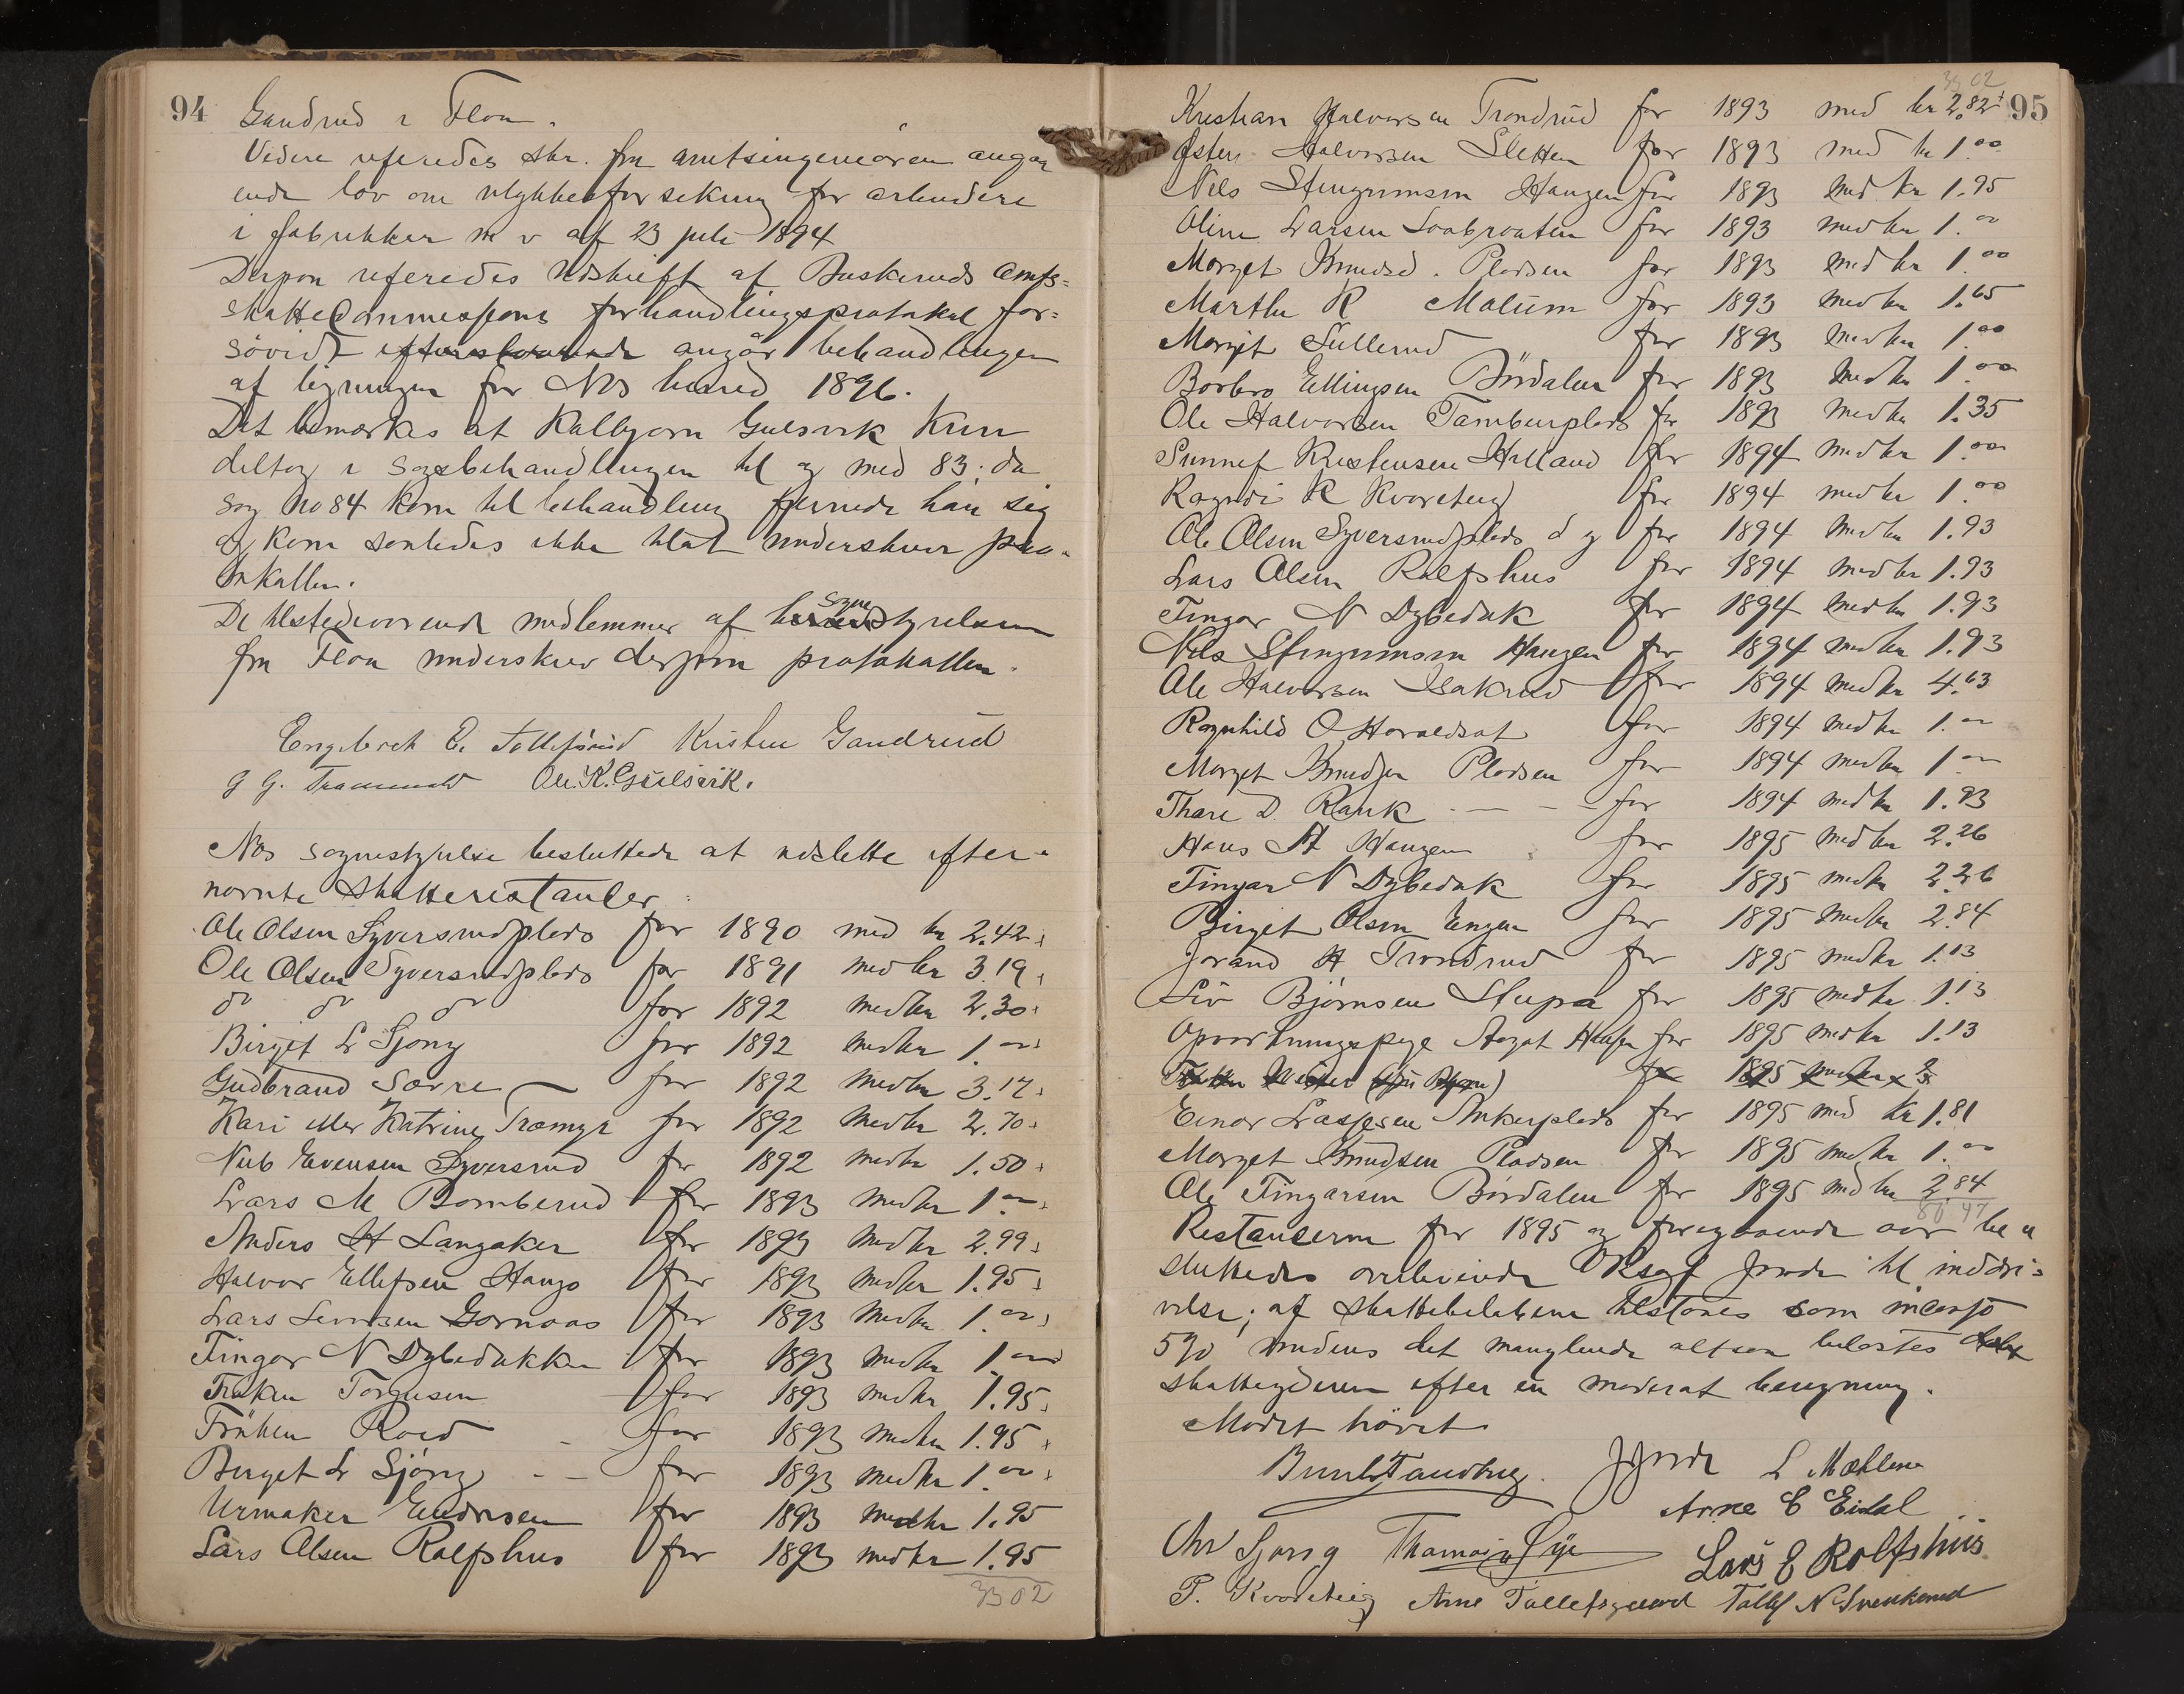 94
Gandrud i Flaa.
Videre refereredes skr. fra amtsingeniøren angaa
ende lov om ulykkesforsikring for arbeidere
i fabrikker m v af 23 juli 1894
Derpaa refereredes Udskrift af Buskeruds Amts=
skattecommissions forhandlingsprotokol for=
såvidt angår behandlingen
af ligningen for Nes herred 1896.
Det bemærkes at Kalbjørn Gulsvik Kun
deltog i sagsbehandlingen til og med 83; da
sag no 84 kom til behandling fjernede han sig
og kom saaledes ikke til at underskrive pro=
tokollen.
De tilstedeværende medlemmer af herredstyrelsen
sogne
fra Flaa underskrev derpaa protokollen.
Engebret E. Tollefsrud Kristen Gandrud
G G. Ole. K. Gulsvik.
Nes sognestyrelse besluttede at udslette efter=
nævnte skatterestancer
Ole Olsen Syversrudplads for 1890 med kr 2.42
Ole Olsen Syversrudplads for 1891 med kr 3.19
do do do for 1892 med kr 2.30
Birgit L Sjong for 1892 med kr 1.00
Gudbrand Sorre for 1892 med kr 3.17
Kari eller Katrine Træmyr for 1892 med kr 2.70
Nub Evensen Syversrud for 1892 med kr 1.50
Lars M Bomberud for 1893 med kr 1.00
Anders H Langaker for 1893 med kr 2.99
Halvor Ellefsen Haugs for 1893 med kr 1.95
Lars Gornaas for 1893 med kr 1.00
Tingar N Dybedokken for 1893 med kr 1.00
Frøken Torgusen for 1893 med kr 1.95
Frøken Roed for 1893 med kr 1.95
Birget L Sjong for 1893 med kr 1.00
Urmaker Endresen for 1893 med kr 1.95
Lars Olsen Rolfshus for 1893 med kr 1.95
33 02
33 02
95
Kristian Halvorsen Trondrud for 1893 med kr 2.82
Østen Halvorsen Sletten for 1893 med kr 1.00
Nils Stengrimsen Haugen for 1893 med kr 1.95
Oline Larsen Loobraaten for 1893 med kr 1.00
Marget Knudsd. Pladsen for 1893 med kr 1.00
Marthe R Malum for 1893 med kr 1.65
Margit Sullerud for 1893 med kr 1.00
Borbro Ellingsen Bördalen for 1893 med kr 1.00
Ole Halvorsen Tamburplads for 1893 med kr 1.35
Sunnef Kristensen Hilland for 1894 med kr 1.00
Ragndi K Kvarsteig for 1894 med kr 1.00
Ole Olsen Syversrudplads d y for 1894 med kr 1.93
Lars Olsen Rolfshus for 1894 med kr 1.93
Tingar N Dybedak for 1894 med kr 1.93
Nils Stengrimsen Haugen for 1894 med kr 1.93
Ole Halvorsen Isakrud for 1894 med kr 4.63
Ragnhild O Haraldset for 1894 med kr 1.00
Marget Knudsen Pladsen for 1894 med kr 1.00
Thare D. Rank for 1894 med kr 1.93
Hans A Haugen for 1895 med kr 2.26
Tingar N Dybedak for 1895 med kr 2.26
Birget Olsen Engen for 1895 med kr 2.84
Jorand H Trondrud for 1895 med kr 1.13
Liv Björnsen Stupa for 1895 med kr 1.13
Opvartningspige Aagot Hansen for 1895 med kr 1.13
for 1895 med kr
Einar Lassesen Ankerplads for 1895 med Kr 1.81
Marget Knudsen Pladsen for 1895 med kr 1.00
Ole Tingarsen Bördalen for 1895 med kr 2.84
80 47
Restancerne for 1895 og foregaaende aar be=
sluttedes overlevende til inddri=
velse; af skattebeløbene tilstaaes som incasso
5% medens det manglende altsaa belastes
skatteyderen efter en moderat beregning.
Mødet hævet
Bernh. Tandberg. L Mæhlum
Arne E Eidal
Chr Sjong Thomas Lye Lars E Rolfshus
P. Kvarsteig Arne Tollefsgaard Tollef N Svenkerud